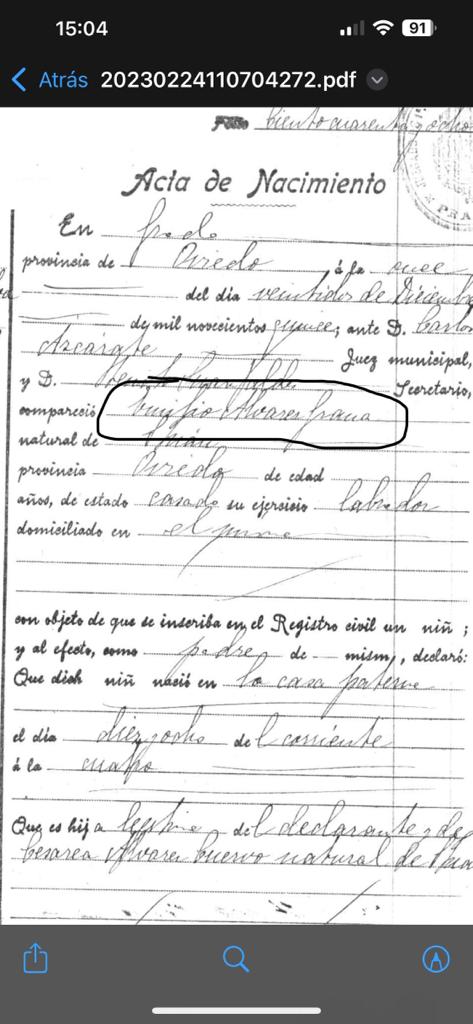 15:04
91
Atrás 20230224110704272.pdf
Folio ciento cuarenta y ocho
Acta de Nacimiento
En Grado
provincia de Oviedo á la once
del día veintidos de Diciembre
de mil novecientos quince; ante D. Carlos
Azcárate Juez municipal,
y D. Secretario,
compareció Alvarez Grana
natural de
provincia Oviedo de edad
años, de estado casado su ejercicio labrador
domiciliado en el
con objeto de que se inscriba en el Registro civil un niñ ;
y al efecto, como padre de mism , declaró:
Que dich niñ nació en la casa paterna
el día diez y ocho del corriente
á la cuatro
Que es hija legitima del declarante y de
Cesarea Alvarez Cuervo natural de